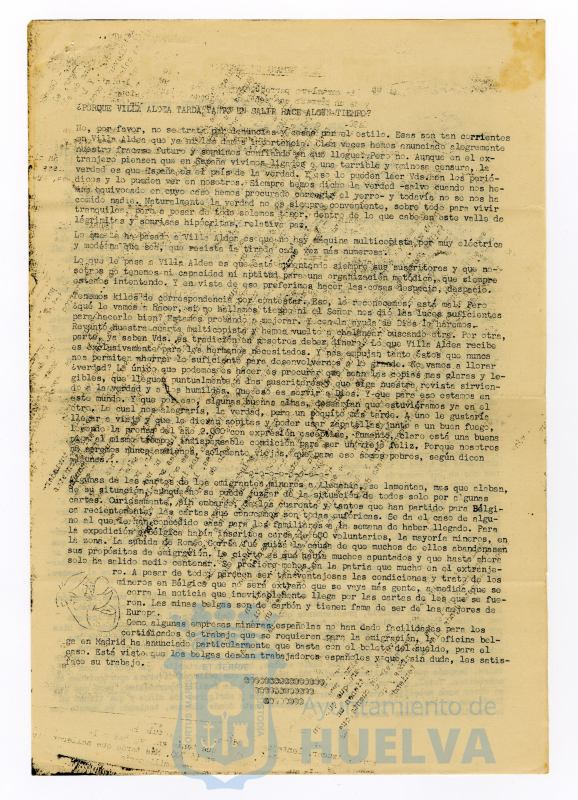 ¿PORQUE VILLA ALDEA TARDA TANTO EN SALIR HACE ALGUN TIEMPO?
No, por favor, no se trata por denuncias y cosas por el estilo. Esas son tan corrientes
en Villa Aldea que ya ni les damos importancia. Cien veces hemos anunciado alegremente
nuestro fracaso futuro y seguimos confiando en que llegue. Pero no. Aunque en el ex-
tranjero piensen que en España vivimos ligados a una terrible y ominosa censura, la
verdad es que España es el país de la verdad. Y eso lo pueden leer Vds. en los perió-
dicos y lo pueden ver en nosotros. Siempre hemos dicho la verdad -salvo cuando nos he-
mos equivocado en cuyo caso hemos procurado corregir el yerro- y todavía no se nos ha
comido nadie. Naturalmente la verdad no es siempre conveniente, sobre todo para vivir
tranquilos, pero a pesar de todo solemos tener, dentro de lo que cabe en este valle de
lágrimitas y sonrisas hipócritas, relativa paz.
Lo que le ha pasado a Villa Aldea es que no hay máquina multicopista, por muy eléctrica
y moderna que sea, que resista la tirada cada vez más numerosa.
Lo que le pasa a Villa Aldea es que está aumentando siempre sus suscritores y que no-
sotros no tenemos ni capacidad ni aptitud para una organización metódica, que siempre
estamos intentando. Y en vista de eso preferimos hacer las cosas despacio, despacio.
Tenemos kilos de correspondencia por contestar. Eso, lo reconocemos, está mal. Pero
¿qué le vamos a hacer, si no hallamos tiempo ni el Señor nos dió las luces suficientes
para hacerlo bien? Estamos probando a mejorar. Y con la ayuda de Dios lo haremos.
Reventó nuestra cuarta multicopista y hemos vuelto a chalanear buscando otra. Por otra
parte, ya saben Vds. es tradición en nosotros deber dinero. Lo que Villa Aldea recibe
es exclusivamente para los hermanos necesitados. Y nos empujan tanto éstos que nunca
nos permiten ahorrar lo suficiente para desenvolvernos a lo grande. No vamos a llorar
¿verdad? Lo único que podemos es hacer es procurar que sean las copias más claras y le-
gibles, que lleguen puntualmente a los suscritores y que siga nuestra revista sirvien-
do a la verdad y a los humildes. Que eso es servir a Dios. Y que para eso estamos en
este mundo. Y que por eso, algunas buenas almas, desearían que estuviéramos ya en el
otro. Lo cual nos alegraría, la verdad, pero un poquito más tarde. A uno le gustaría
llegar a viejo y que le dieran sopitas y poder usar zapatillas junto a un buen fuego,
leyendo la prensa del año 2.000 con expresión escéptica. Fumando, claro está una buena
pipa al mismo tiempo, indispensable condición para ser un viejo feliz. Porque nosotros
no seremos nunca ancianos, solamente viejos, que para eso somos pobres, según dicen
algunos...
Algunas de las cartas de los emigrantes mineros a Alemania, se lamentan, mas que alaban,
de su situación, aunque no se puede juzgar de la situación de todos solo por algunas
cartas. Curiosamente, sin embargo, de los cuarenta y tantos que han partido para Bélgi-
ca recientemente, las cartas que conocemos son todas eufóricas. Se da el caso de algu-
no al que le han concedido casa para los familiares a la semana de haber llegado. Para
la expedición a Bélgica habían inscritos cerca de 500 voluntarios, la mayoría mineros, en
la zona. La subida de Romeo Gorría fué quizá la causa de que muchos de ellos abandonasen
sus propósitos de emigración. Lo cierto es que había muchos apuntados y que hasta ahora
solo ha salido medio centenar. Se prefiere menos en la patria que mucho en el extranje-
ro. A pesar de todo parecen ser tan ventajosas las condiciones y trato de los
mineros en Bélgica que no será extraño que se vaya más gente, a medida que se
corra la noticia que inevitablemente llega por las cartas de los que se fue-
ron. Las minas belgas son de carbón y tienen fama de ser de las mejores de
Europa.
Como algunas empresas mineras españolas no han dado facilidades para los
certificados de trabajo que se requieren para la emigración, la oficina bel-
ga en Madrid ha anunciado particularmente que basta con el boleto del sueldo, para el
caso. Está visto que los belgas desean trabajadores españoles y que, sin duda, les satis-
face su trabajo.
Ayuntamiento de
HUELVA